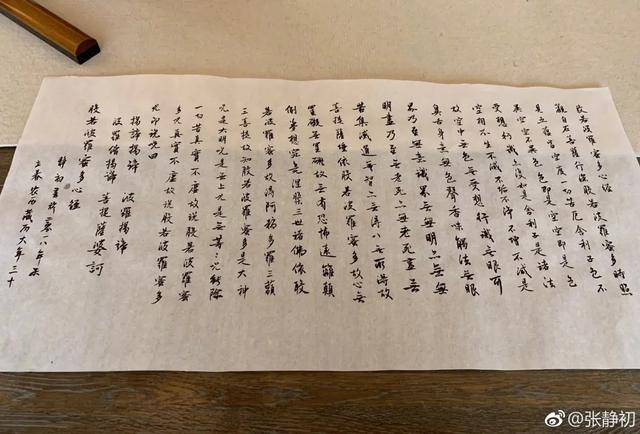 般若波羅蜜多心經
觀自在菩薩行深般若波羅蜜多時照
見五蘊皆空度一切苦厄舍利子色不
異空空不異色色即是空空即是色
受想行識亦復如是舍利子是諸法
空相不生不滅不垢不淨不增不減是
故空中無色無受想行識無眼耳
鼻舌身意無色聲香味觸法無眼
界乃至無意識界無無明亦無無
明盡乃至無老死亦無老死盡無
苦集滅道無智亦無得以無所得故
菩提薩埵依般若波羅蜜多故心無
罣礙無罣礙故無有恐怖遠離顛
倒夢想究竟涅槃三世諸佛依般
若波羅蜜多故得阿耨多羅三藐
三菩提故知般若波羅蜜多是大神
咒是大明咒是無上咒是無等等咒能除
一切苦真實不虛故說般若波羅蜜
多咒即說咒曰
揭諦揭諦 波羅揭諦
波羅僧揭諦 菩提薩婆訶
般若波羅蜜多心經
靜初書於二零一八年
立春農曆大年三十
@张静初